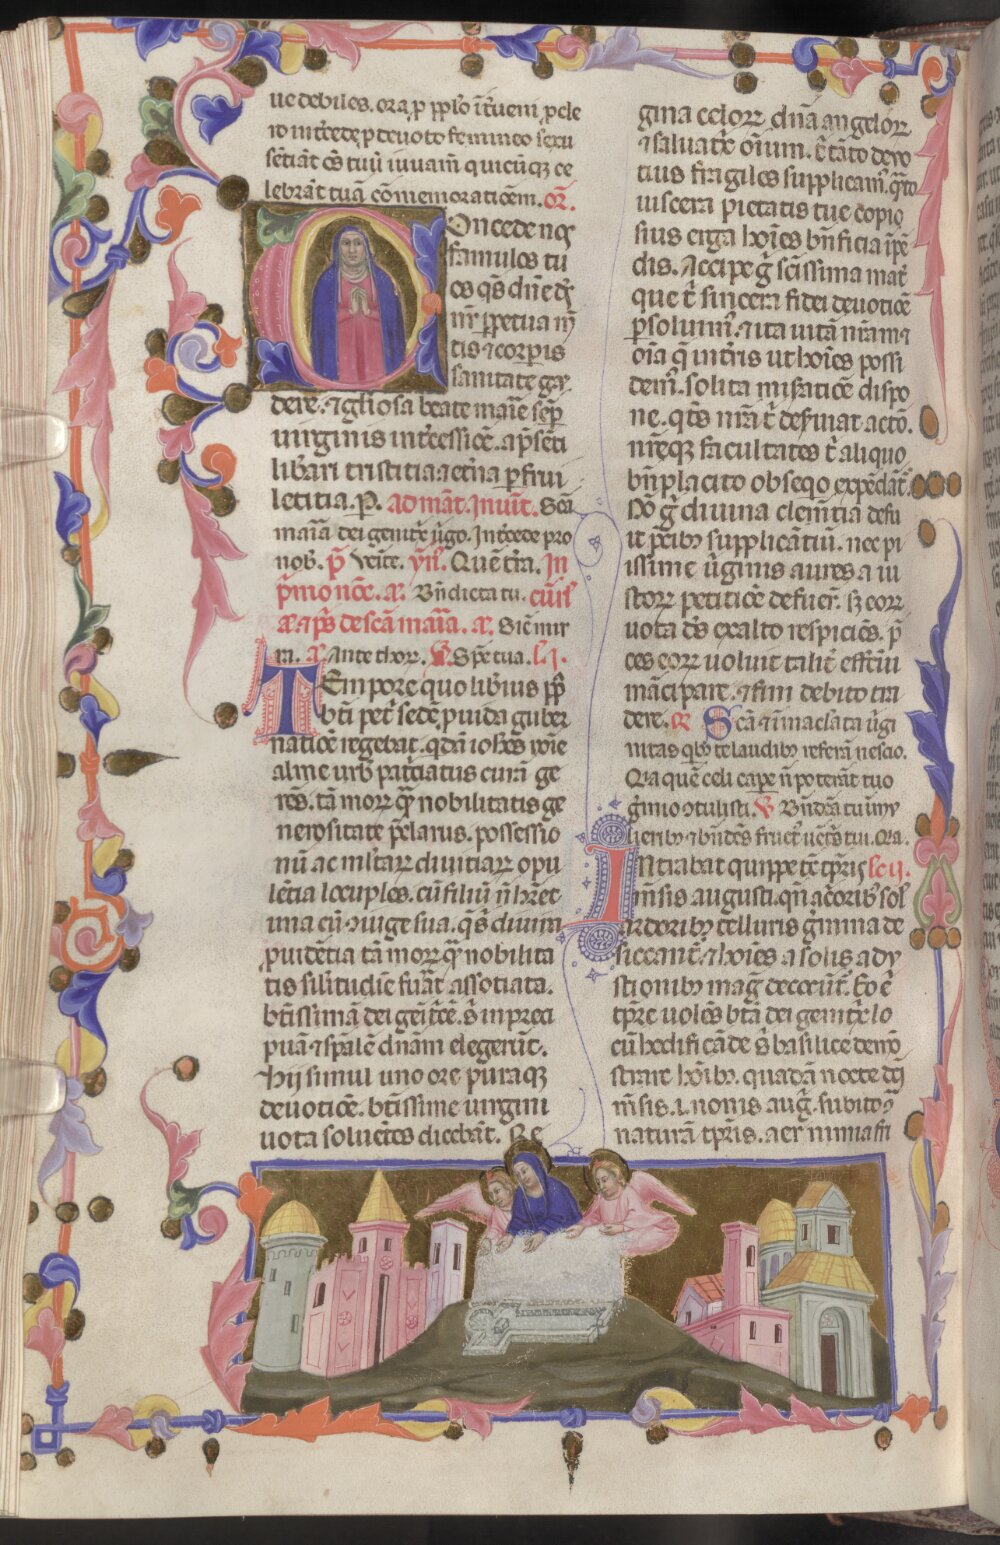 ue debiles. ora p̄ pplo īt̄ueni p̄ cle
ro int̄cede p̄ deuoto femineo sexu
sētiāt oēs tuū iuuam̄ quicūqꝫ ce
lebrāt tuā cōmemoratiōem. or̄.
Oncede nos
famulos tu
os q̄s dn̄e dꝰ
nr̄ ppetua m̄
tis ⁊ corpis
sanitate gau
dere. ⁊ gl̄iosa beate marie semp
uirginis int̄cessiōe. ap̄senti
lib̄ari tristitia ⁊ et̄na p̄frui
letitia. P. ad mat. Inuit. Scā
maria dei genitx̄ ūgo. Int̄cede pro
nob. p̄s Venite. yn̄. Quē tr̄a. In
p̄mo noc̄. a. Bn̄dicta tu. cū
de scā maria. a. Sic mir
ra. a Ante thor. V. Spē tua. L j.
TEmpore quo libius pp
bti petⁱ sedē puida guber
natiōe regebat. qdā iohēs noīe
alme urbⁱ patⁱciatus curā ge
rēs. tā moꝝ qꝫ nobilitatis ge
nerositate p̄clarus. possessio
nū ac mltaꝝ diuitiaꝝ opu
lētia locuples. cū filiū n̄ hr̄et
una cū ꝯiuge sua. q̄s diuina
puidētia tā moꝝ qꝫ nobilita
tis silitudīe fuāt associata.
bt̄issimā dei gēitcē. s̄ in preci
puā ⁊ spālē dnām elegerūt.
Hij simul uno ore puraqꝫ
deuotiōe. bt̄issime uirgini
uota soluētes dicebāt. Re
gina celoꝝ dn̄a angeloꝝ
⁊ saluat̄x oīum. t̄ tāto deuo
tius fragiles supplicam̄. q̄to
uiscera pietatis tue copio
sius erga hoīes bn̄ficia īpē
dis. Accipe g̊ scīssima mat̄
que t̄ sincera fidei deuotiōe
psolumꝰ. ⁊ ita uitā nr̄am ⁊
oīa q̄ int̄ris ut hoīes possi
demꝰ. solita misatiōe dispo
ne. q̄tꝰ nr̄a t̄ deſuiat actō.
nr̄eqꝫ facultates t̄ aliquo
bn̄placito obseqo expēdāt̄.
Nō g̊ diuina clemētia defu
it p̄cibꝫ supplicātiū. nec pi
issime ūginis aures a iu
storꝝ petitiōe defuer̄. sꝫ eorꝝ
uota dꝰ ex alto respiciēs. p̄
ces eorꝝ uoluit talit̄ effctui
mācipare. ⁊ fini debito tra
dere. R Scā ⁊ īmaclata ūgi
nitas qbꝫ te laudibꝫ referā nescio.
Q̄a quē celi cape n̄ poterāt tuo
g̊mio ꝯtulisti. V Bn̄dcā tu ī my
lieribꝫ ⁊ bn̄dcs̄ fructꝰ uent̄s tui. Q̄a.
INtrabat quippe tc̄ tp̄ris lc̄ ij.
m̄sis augusti. qn̄ acōribꝰ sol
ardoribꝫ telluris g̊mina de
siccant̄. ⁊ hoīes a solis ady
stionibꝫ mag decorūt̄. Eo ē
tp̄re uolēs bt̄a dei genitx̄ lo
cū hedificāde s̄ basilice demō
strare hoībꝫ. quadā nocte dcī
m̄sis. i. nonis aug̊. subito ꝯ
naturā tp̄ris. aer nimia fri